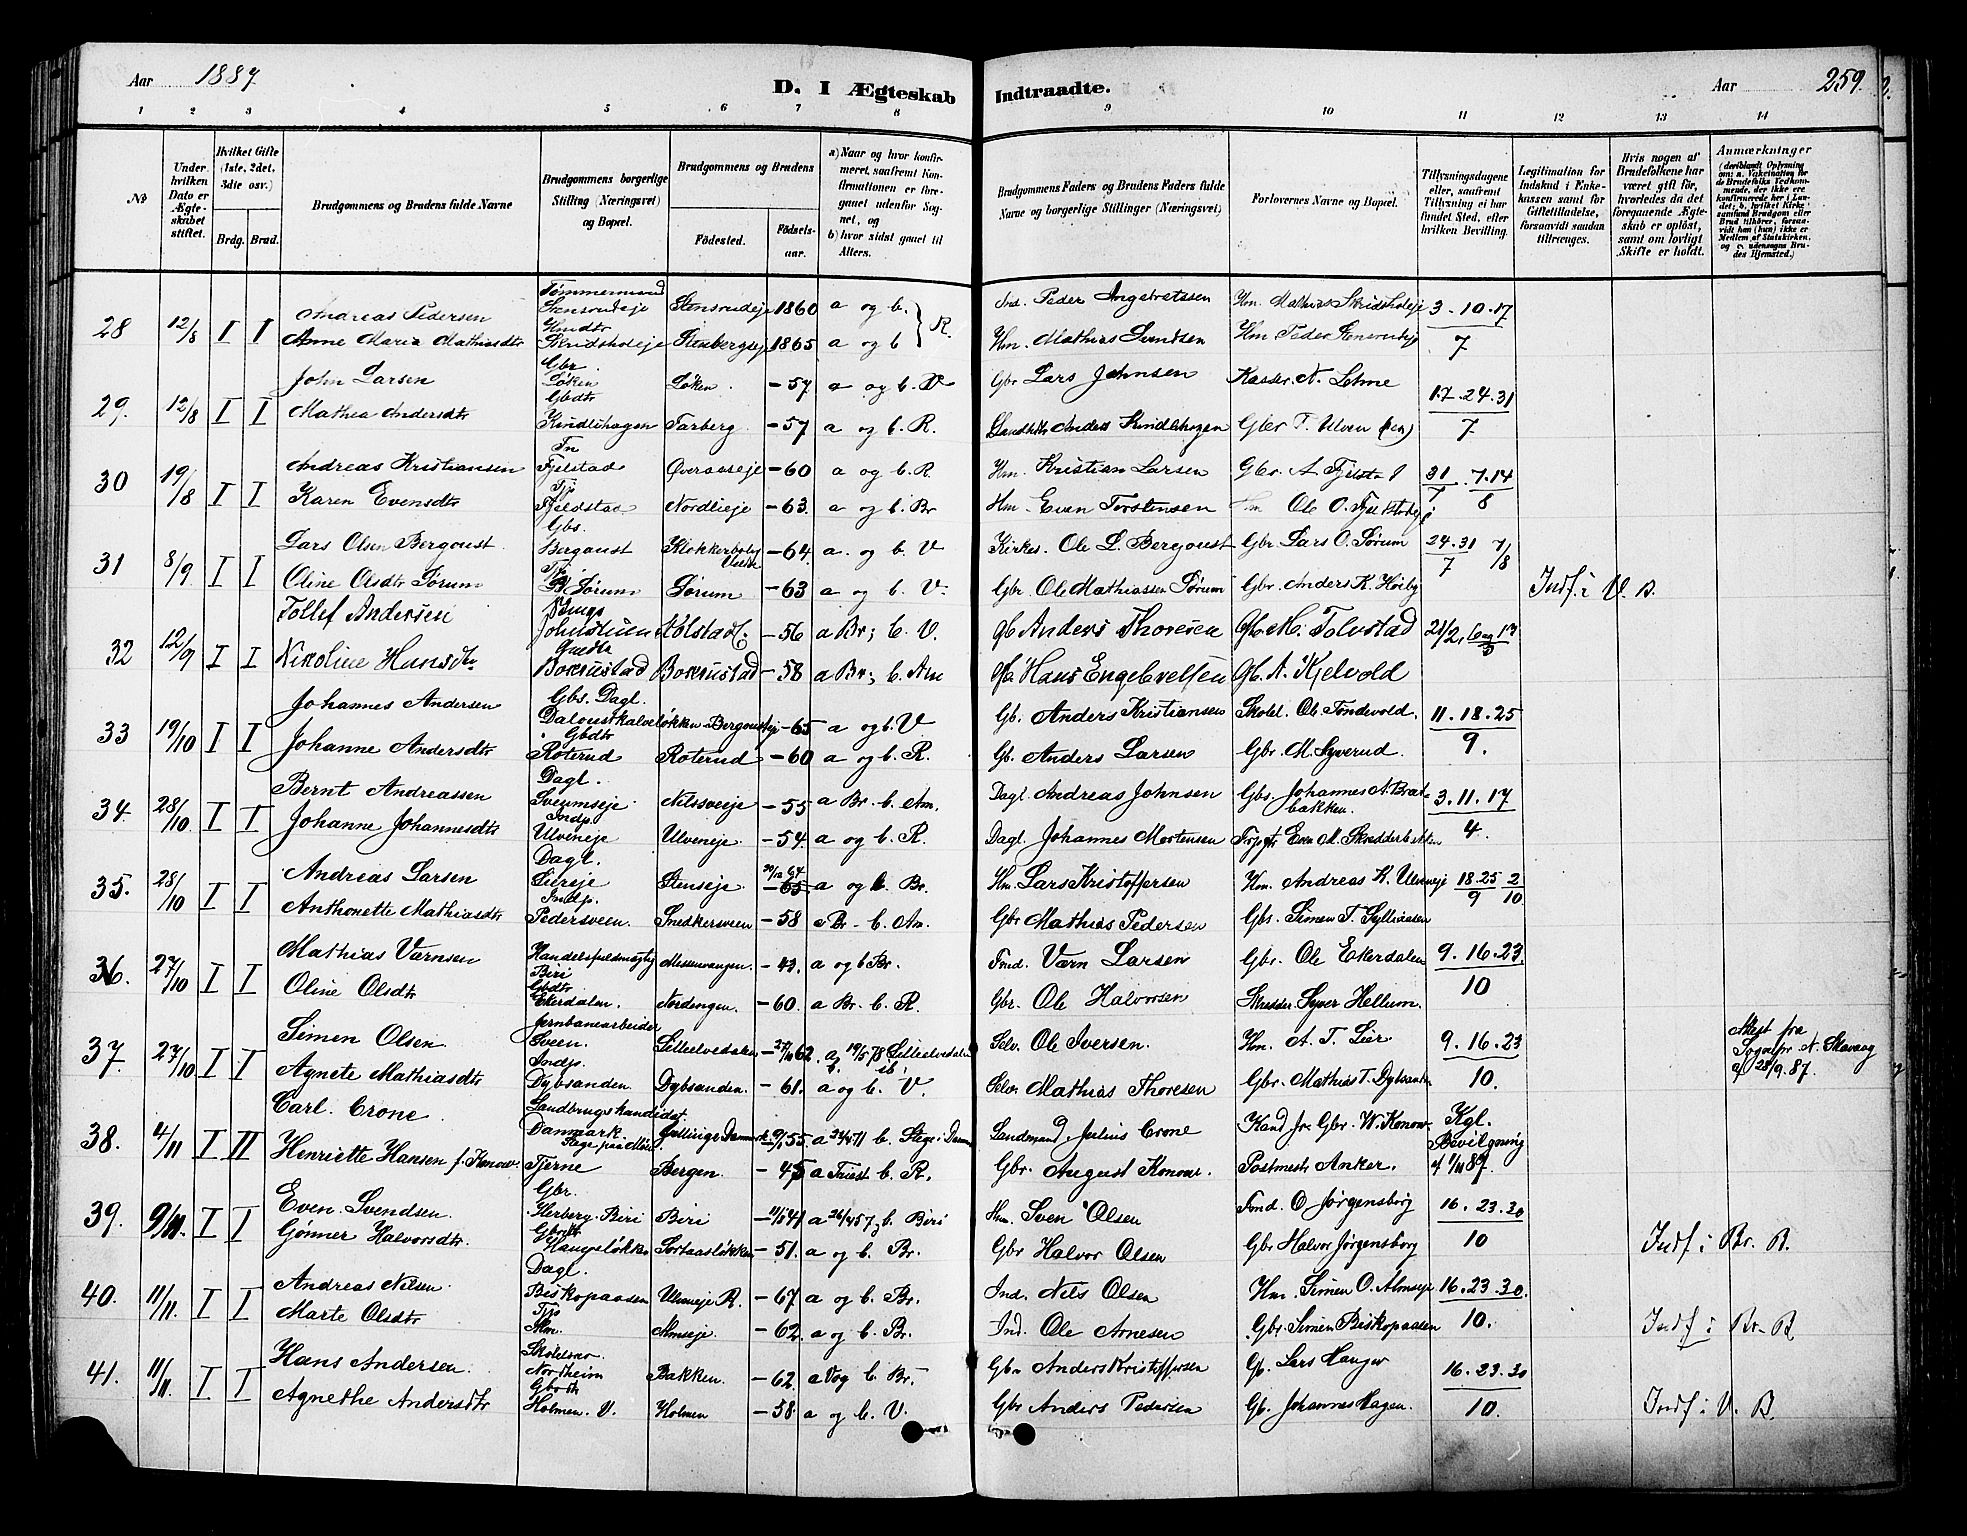 Aar 1887.
D. I Ægteskab Indtraadte.
Aar 259.
1 2 3 4 5 6 7 8 9 10 11 12 13 14
No
Under hvilken Dato er Ægteskabet stiftet.
Hvilket Gifte (1ste, 2det, 3die osv.)
Brdg. Brud.
Brudgommens og Brudens fulde Navne
Brudgommens borgerlige Stilling (Næringsvei) og Bopæl.
Brudgommens og Brudens
Fødested.
Fødselsaar.
a) Naar og hvor konfirmeret, saafremt Konfirmationen er foregaaet udenfor Sognet, og
b) hvor sidst gaaet til Alters.
Brudgommens Faders og Brudens Faders fulde Navne og borgerlige Stillinger (Næringsvei)
Forlovernes Navne og Bopæl.
Tillysningsdagene eller, saafremt Tillysning ei har fundet Sted, efter hvilken Bevilling.
Legitimation for Indskud i Enkekassen samt for Giftetilladelse, forsaavidt saadan tiltrænges.
Hvis nogen af Brudefolkene har været gift før, hvorledes da det foregaaende Ægteskab er opløst, samt om lovligt Skifte er holdt.
Anmærkninger
28 12/8 I I Andreas Pedersen Tømmermand Stensrudeje Stensrudeje 1860 a og b. R. Ind. Peder Ingebretssen Hm. Mathias Skridsholeje 3.10.17
Anne Maria Mathiasdtr Hmdtr Skridsholeje 1865 a og b Hm. Mathias Svendsen Hm Peder Stensrudeje 7
29. 12/8 I I John Larsen Gbr. Løken Løken. -57 a og b. V Gbr Lars Johnsen Kasser. N. Lehne 17.24.31
Mathea Andersdtr Gbdtr Kindlihagen Farberg. -57 a og b. R. Anders Kindlihagen Gbr T. Ulven 7
30 19/8 I I Andreas Kristiansen Tn Fjelstad Overaaseje -60 a og b. R. Hm. Kristian Larsen Gbr. A. Fjelstad 31/7 7.14
Karen Evensdtr Tjp Fjeldstad Nordlieje -63. a og b. Br Hm. Even Torstensen Ole O. 8
31 8/9 I I Lars Olsen Bergoust. Gbs. Bergoust -64. a. og b. V Kirkes. Ole L. Bergoust Gbr. Lars O. Sørum 24.31 7/8
Oline Olsdtr Sørum Sørum Sørum -63 a og b. V. Gbr. Ole Mathiassen Sørum Gbr. Anders K. Høiby 7 Indf. i V. B.
32 12/9 I I Tollef Andersen Kolstad -56 a Br; b. V. Gb Anders Thoresen Gb. M. Tolvstad
Nikoline Hansdtr. Borkrustad Borkrustad -58 a Br; b. Am Gb. Hans Engebretsen Gb. A. Kjelvold
33 19/10 I I Johannes Andersen Gbs. Dagl. -65 a og b. V Gb. Anders Kristiansen Skolel. Ole Tondevold. 11.18.25
Johanne Andersdtr Gbdtr Roterud Roterud -60 a og b. R. Gb. Anders Larsen Gbr. M. Syverud. 9.
34. 28/10 I I Bernt Andreassen Dagl. Sveumseje. Nilssveje -55 a Br. b. Am. Dagl. Andreas Johnsen Gbs. Johannes A. Brat- bakken. 3.11.17
Johanne Johannesdtr Indp. Ulveneje Ulveneje -54. a og b. R. Dagl. Johannes Mortensen Even M. Skredderbakken 4.
35. 28/10 I I Andreas Larsen Dagl. Liereje Stenseje. -65 a og b. Br. Hm. Lars Kristoffersen Hm. Andreas K. Ulveneje 18.25 2
Anthonette Mathiasdtr Indp. Pedersveen. Snedkersveen -58 a Br. b. Am. Gbr Mathias Pedersen Gbs. Simen T. Sylliaasen 9 10
36. 27/10 I I Mathias Værnsen Handelsfuldmægtig Biri Messenvangen. -43. a og b Br. Ind. Værn Larsen Gbr. Ole Ekerdalen 9.16.23.
Oline Olsdtr Gbdtr Ekerdalen. Nordengen. -60. a Br. b. R. Gbr. Ole Halvorsen Skrædder. Syver Hellum. 10
37. 27/10 I I Simen Olsen Jernbanearbeider Sveen. Lilleelvedalen -27/11 62. a 19/5 78 Lilleelvedalen Selv. Ole Iversen. Hm. A. T. Lier 9.16.23
Agnete Mathiasdtr Indp. Dybsanden. Dybsanden. -61. a og b. V. Selv Mathias Thoresen Gbr. Mathias T. Dybsanden 10.
Attest fra Sognepr. N. Skavang af 28/9. 87.
38. 4/11 I II Carl. Crone. Landbrugskandidat Danmark. Stege paa Møen. -9/1 55. a 24/4 71 b. Stege i Danm. Landmand, Julius Crone Kand jr. Gbr. W. Konow Kgl. Bevilgning
Henriette Hansen f. Konow. Tjerne Bergen. -45 a Triest b. R. Gbr. August Konow Postmest. Anker. af 1/11 87.
39. 9/11. I I Even Svendsen. Gbr. Herberg. Biri Biri -11/5 41 a 26/4 57, b. Biri Hm. Sven Olsen Ind. O Jørgensborg 16.23.30
Gønner Halvorsdtr. Gbrdt. Haugsløkken Sortaasløkken -51. a og b. Br. Gbr Halvor Olsen Gbr Halvor Jørgensborg 10 Indf i Br. B.
40. 11/11. I I Andreas Nilsen. Dagl. Biskopaasen Ulveneje R. -67 a og b. Br. Ind. Nils Olsen Hm. Simen O. Almseje 16.23.30.
Marte Olsdtr Tjp Alm. Almseje. -62. a og b. Br. Ind. Ole Arnesen Gbr. Simen Biskopaasen 10. Indf i Br. B
41. 11/11. I I Hans Andersen. Nordheim Bakken. -62. a V og b. Br. Gbr Anders Kristoffersen Gb. Lars Hauger 16.23.30
Agnethe Andersdtr Gbrdt. Holmen. V. Holmen -58. a og b. V. Gbr Anders Pedersen Gb. Johannes Hagen. 10. Indf i V. B.